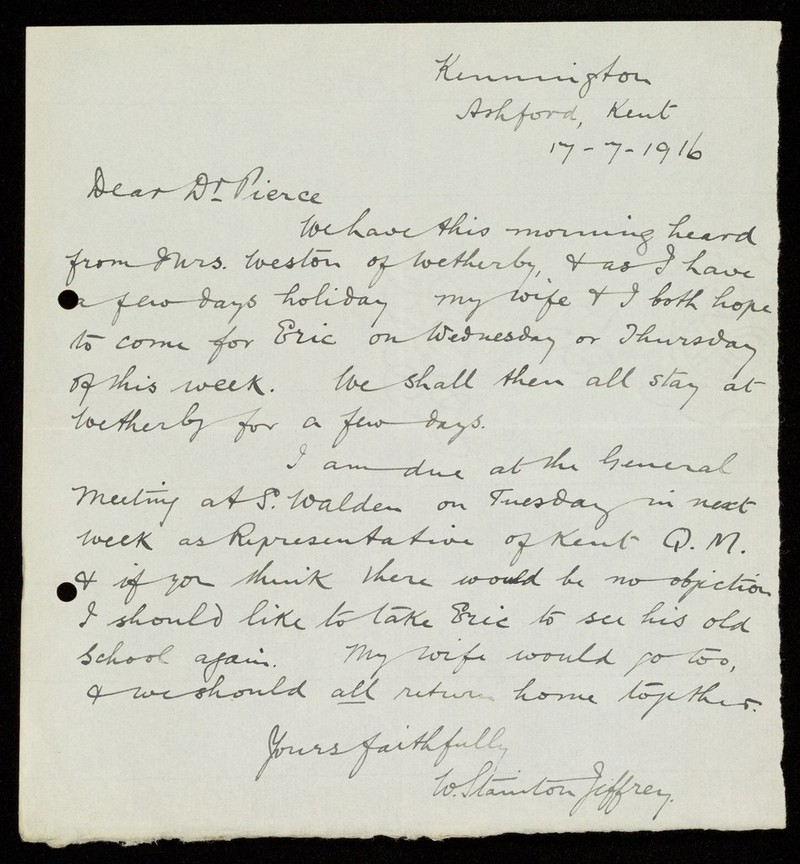 Kennington
Ashford, Kent
17-7-1916
Dear Dr. Pierce
We have this morning heard
from Mrs. Weston of Wetherby, & as I have
a few days holiday my wife & I both hope
to come for Eric on Wednesday or Thursday
of this week. We shall then all stay at
Wetherby for a few days.
I am due at the General
Meeting at S. Walden on Tuesday in next
week as Representative of Kent Q. M.
& if you think there would be no objection
I should like to take Eric to see his old
School again. My wife would go too,
& we should all return home together.
Yours faithfully
W. Stainton Jeffrey.